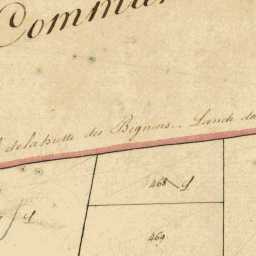 Commu
de la butte des Bignons. Lande d
468
469